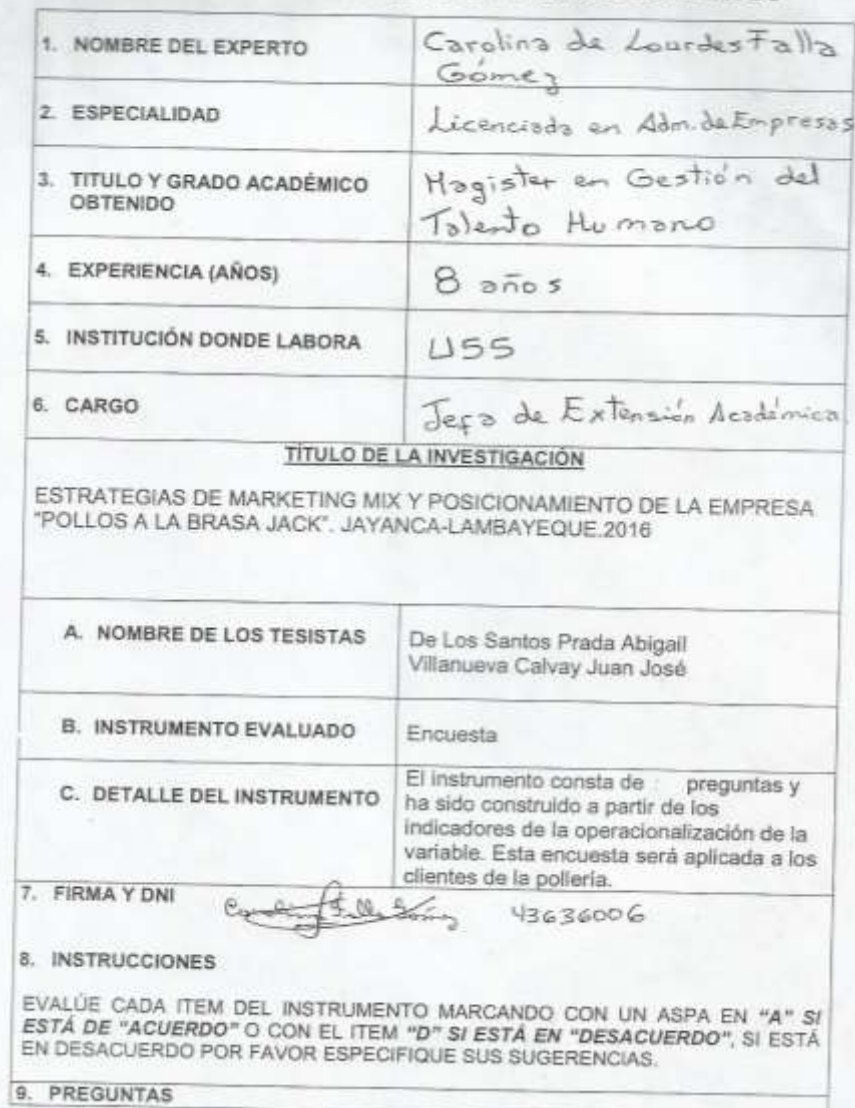 1. NOMBRE DEL EXPERTO
Carolina de Lourdes Falla
Gómez
2. ESPECIALIDAD
Licenciada en Adm. de Empresas
3. TITULO Y GRADO ACADÉMICO
OBTENIDO
Magister en Gestión del
Talento Humano
4. EXPERIENCIA (AÑOS)
8 años
5. INSTITUCIÓN DONDE LABORA
USS
6. CARGO
Jefa de Extensión Académica.
TÍTULO DE LA INVESTIGACIÓN
ESTRATEGIAS DE MARKETING MIX Y POSICIONAMIENTO DE LA EMPRESA
"POLLOS A LA BRASA JACK". JAYANCA-LAMBAYEQUE.2016
A. NOMBRE DE LOS TESISTAS
De Los Santos Prada Abigail
Villanueva Calvay Juan José
B. INSTRUMENTO EVALUADO
Encuesta
C. DETALLE DEL INSTRUMENTO
El instrumento consta de : preguntas y
ha sido construido a partir de los
indicadores de la operacionalización de la
variable. Esta encuesta será aplicada a los
clientes de la pollería.
7. FIRMA Y DNI
Carolina Falla Gómez 43636006
8. INSTRUCCIONES
EVALÚE CADA ITEM DEL INSTRUMENTO MARCANDO CON UN ASPA EN "A" SI
ESTÁ DE "ACUERDO" O CON EL ITEM "D" SI ESTÁ EN "DESACUERDO", SI ESTÁ
EN DESACUERDO POR FAVOR ESPECIFIQUE SUS SUGERENCIAS.
9. PREGUNTAS